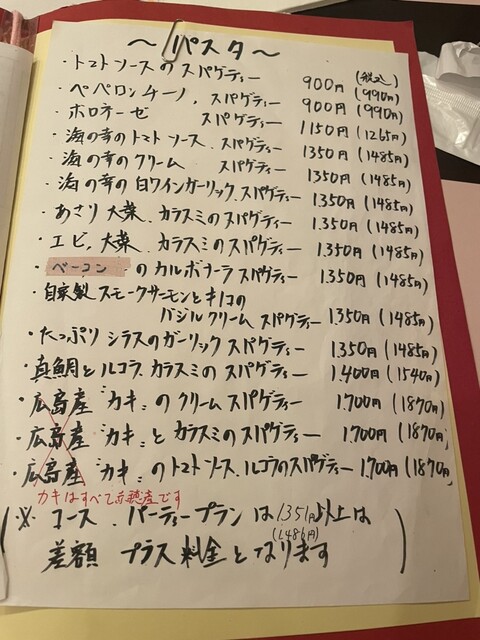 ～パスタ～
(税込)
・トマトソースのスパゲティー 900円(990円)
・ペペロンチーノ、スパゲティー 900円(990円)
・ボロネーゼ スパゲティー 1150円(1265円)
・海の幸のトマトソース、スパゲティー 1350円(1485円)
・海の幸のクリーム スパゲティー 1.350円(1485円)
・海の幸の白ワインガーリック、スパゲティー 1.350円(1485円)
・あさり、大葉、カラスミのスパゲティー 1.350円(1485円)
・エビ、大葉、カラスミのスパゲティー 1.350円(1485円)
・ベーコンのカルボナーラスパゲティー 1.350円(1485円)
・自家製スモークサーモンとキノコの
バジルクリームスパゲティー 1.350円(1485円)
・たっぷりシラスのガーリックスパゲティー 1.350円(1485円)
・真鯛とルコラ、カラスミのスパゲティー 1.400円(1540円)
・広島産〝カキ〟のクリームスパゲティー 1.700円(1870円)
・広島産〝カキ〟とカラスミのスパゲティー 1.700円(1870円)
・広島産〝カキ〟のトマトソース、ルコラのスパゲティー 1.700円(1870円)
カキはすべて赤穂産です
(※コース、パーティープランは1.351円以上は
(1486円)
差額プラス料金となります)